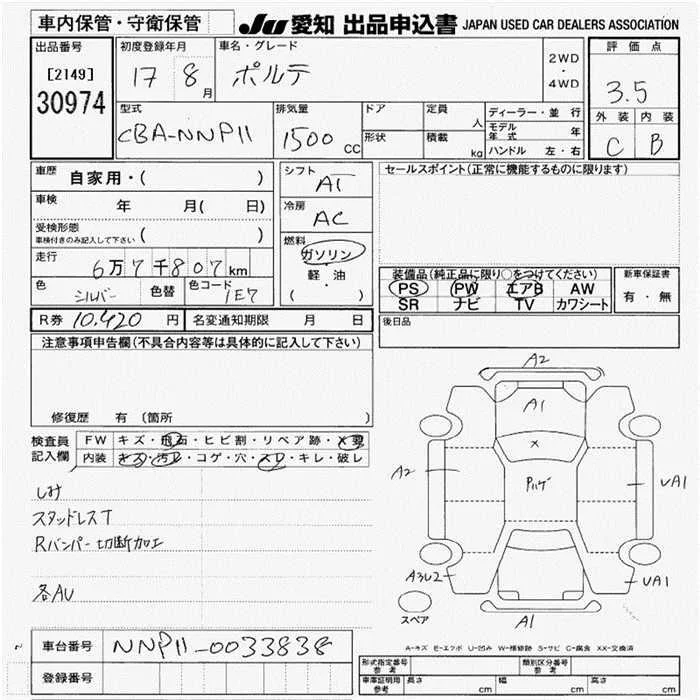 車内保管・守衛保管 JU 愛知 出品申込書 JAPAN USED CAR DEALERS ASSOCIATION
出品番号 初度登録年月 車名・グレード 2WD・4WD 評価点
[2149] 17 8月 ポルテ 3.5
30974
型式 排気量 ドア 定員 人 ディーラー・並行 外装 内装
CBA-NNP11 1500cc 形状 積載 kg モデル年式 年 C B
ハンドル 左・右
車歴 自家用・( ) シフト AT セールスポイント(正常に機能するものに限ります)
車検 年 月( 日) 冷房 AC
受検形態 車検付きのみ記入して下さい ( )
走行 6万7千807km 燃料 ガソリン 軽・油 ( )
装備品(純正品に限り○をつけてください) 新車保証書
色 シルバー 色替 色コード 1E7 PS PW エアB AW 有・無
SR ナビ TV カワシート
R券 10.420円 名変通知期限 月 日 後日品
注意事項申告欄(不具合内容等は具体的に記入して下さい)
修復歴 有 (箇所 )
検査員記入欄 FW キズ・飛石・ヒビ割・リペア跡・X要
内装 キズ・汚レ・コゲ・穴・スレ・キレ・破レ
しみ
スタッドレスT
Rバンパー切断加工
各AU
A2
A1
X
A2
UA1
UA1
A1
スペア
A-キズ E-エクボ U-凹み W-補修跡 S-サビ C-腐食 XX-交換済
車台番号 NNP11-0033838
登録番号
形式指定番号 参考 類別区分番号 参考
車庫証明用 参考 長さ cm 幅 cm 高さ cm